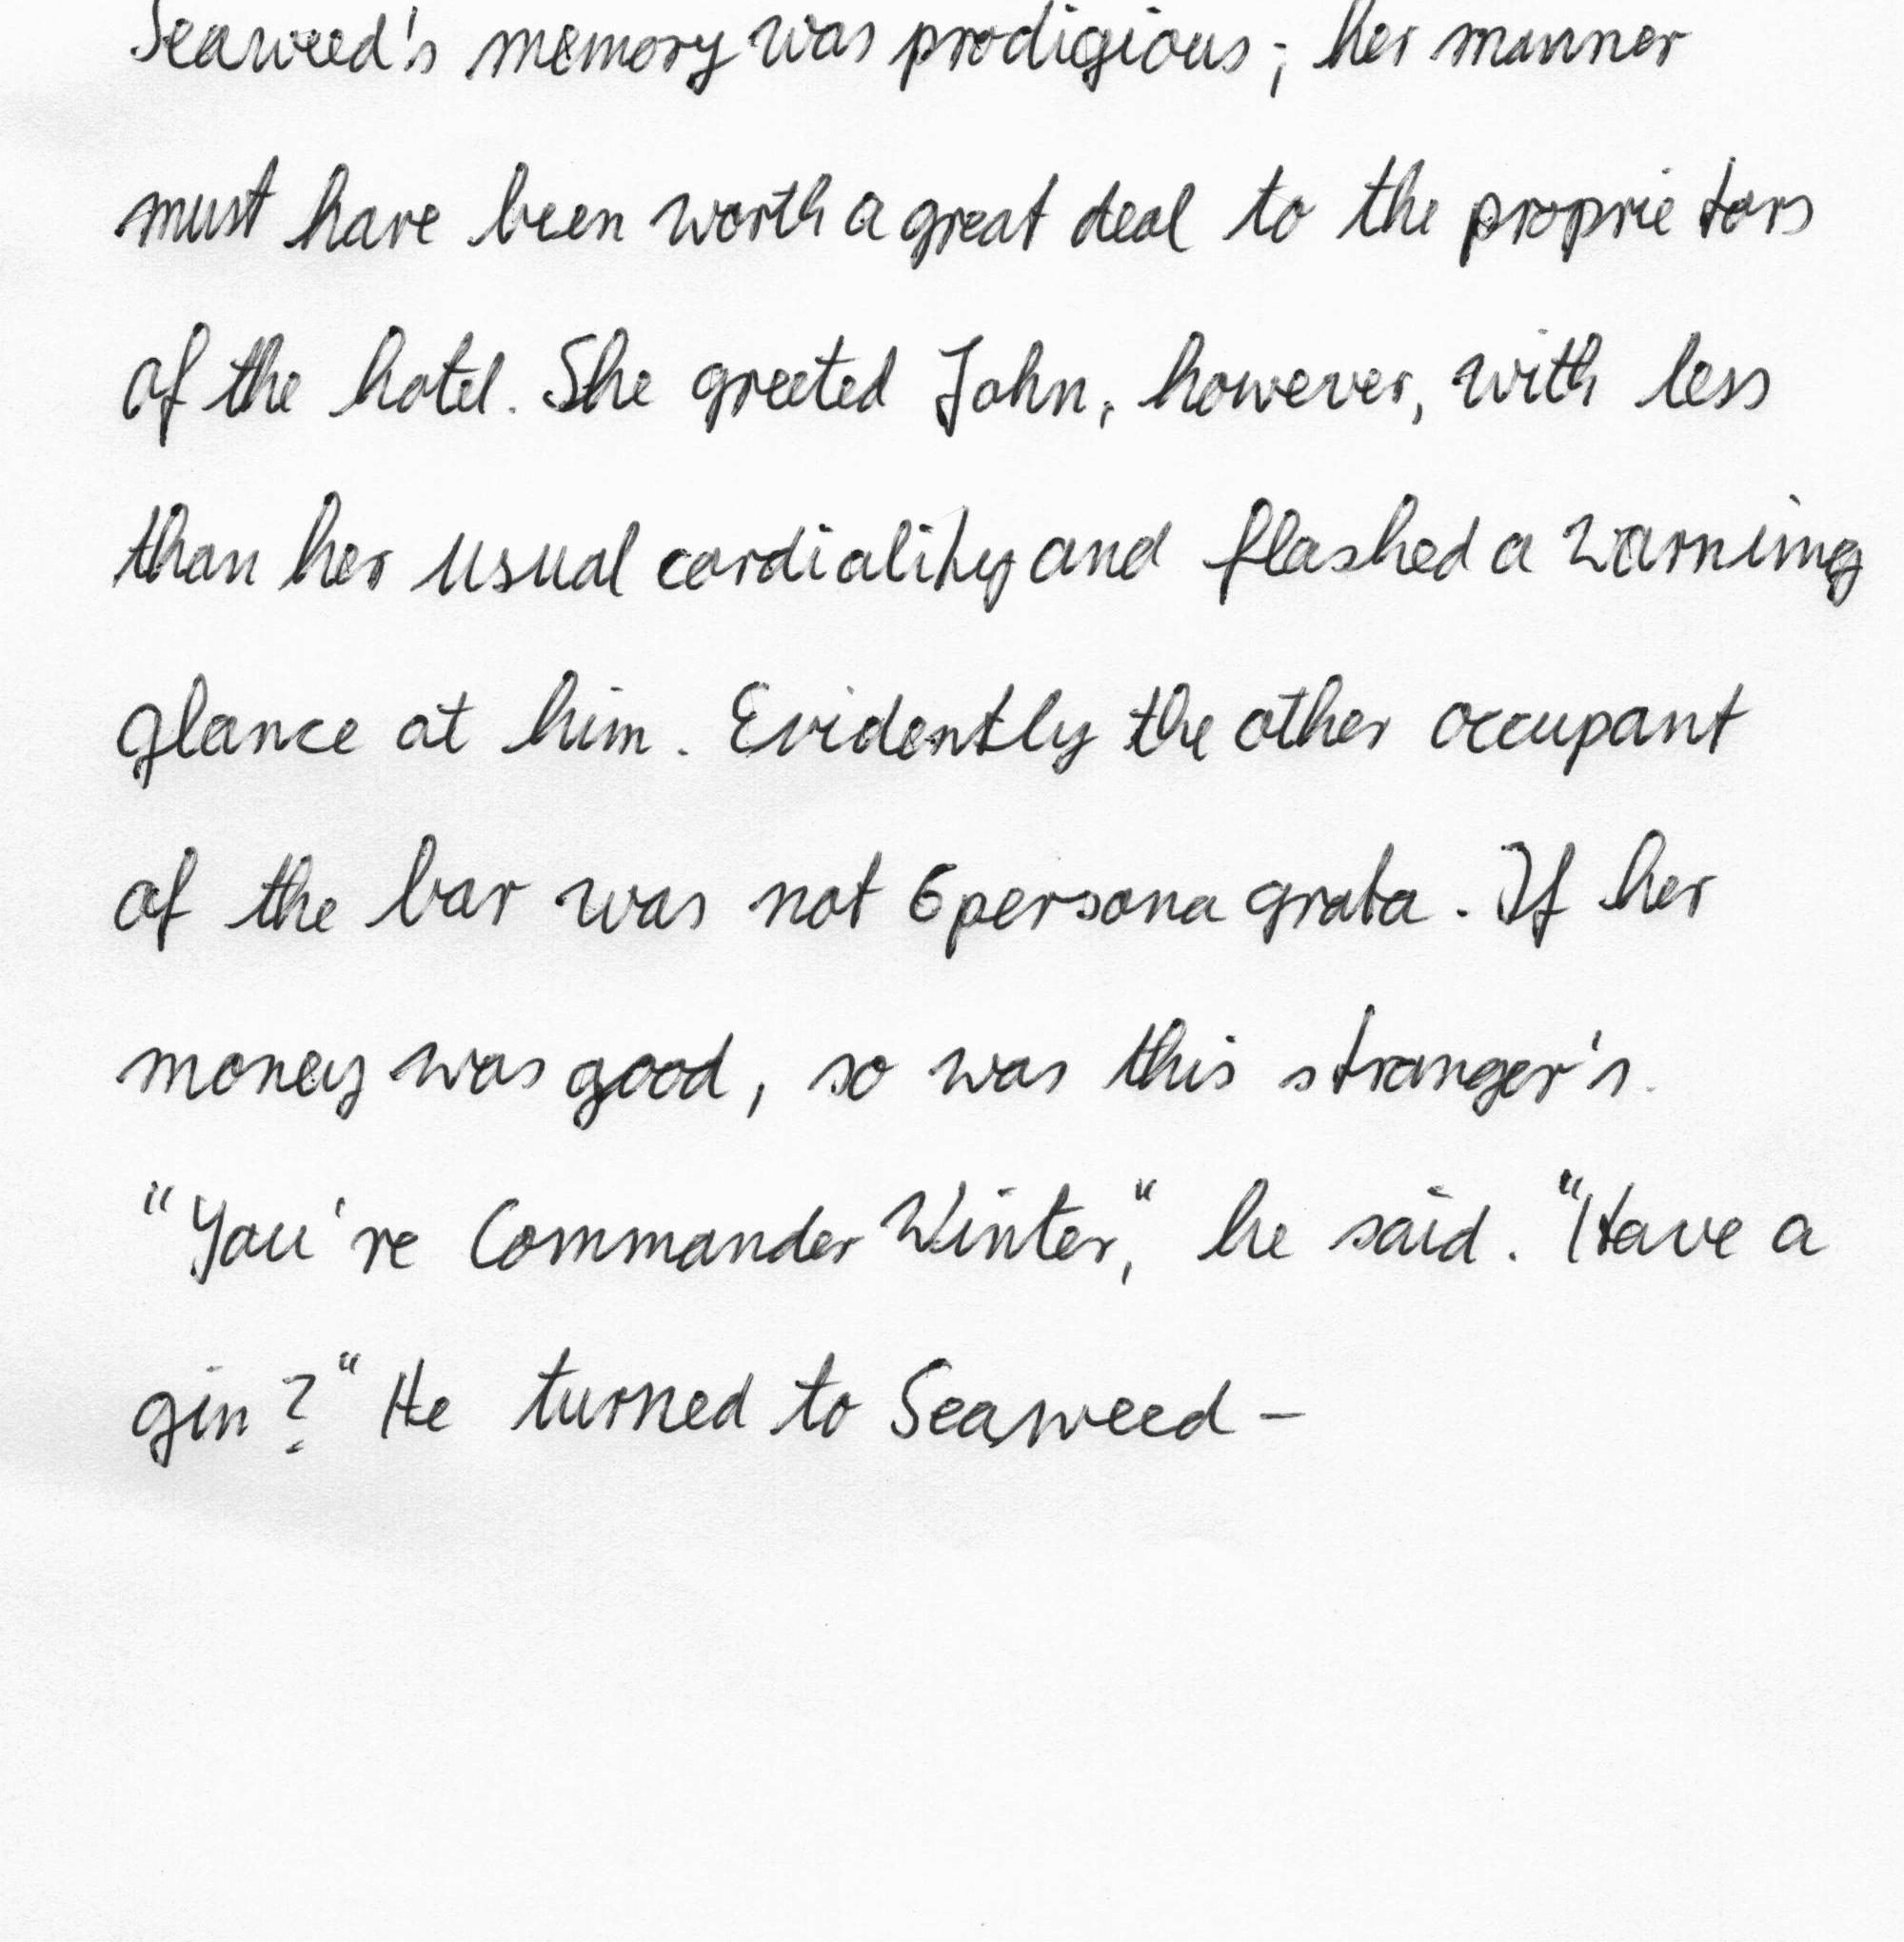 Seaweed's memory was prodigious; her manner
must have been worth a great deal to the proprietors
of the hotel. She greeted John, however, with less
than her usual cordiality and flashed a warning
glance at him. Evidently the other occupant
of the bar was not 6persona grata. If her
money was good, so was this stranger's.
"You're Commander Winter," he said. "Have a
gin?" He turned to Seaweed -